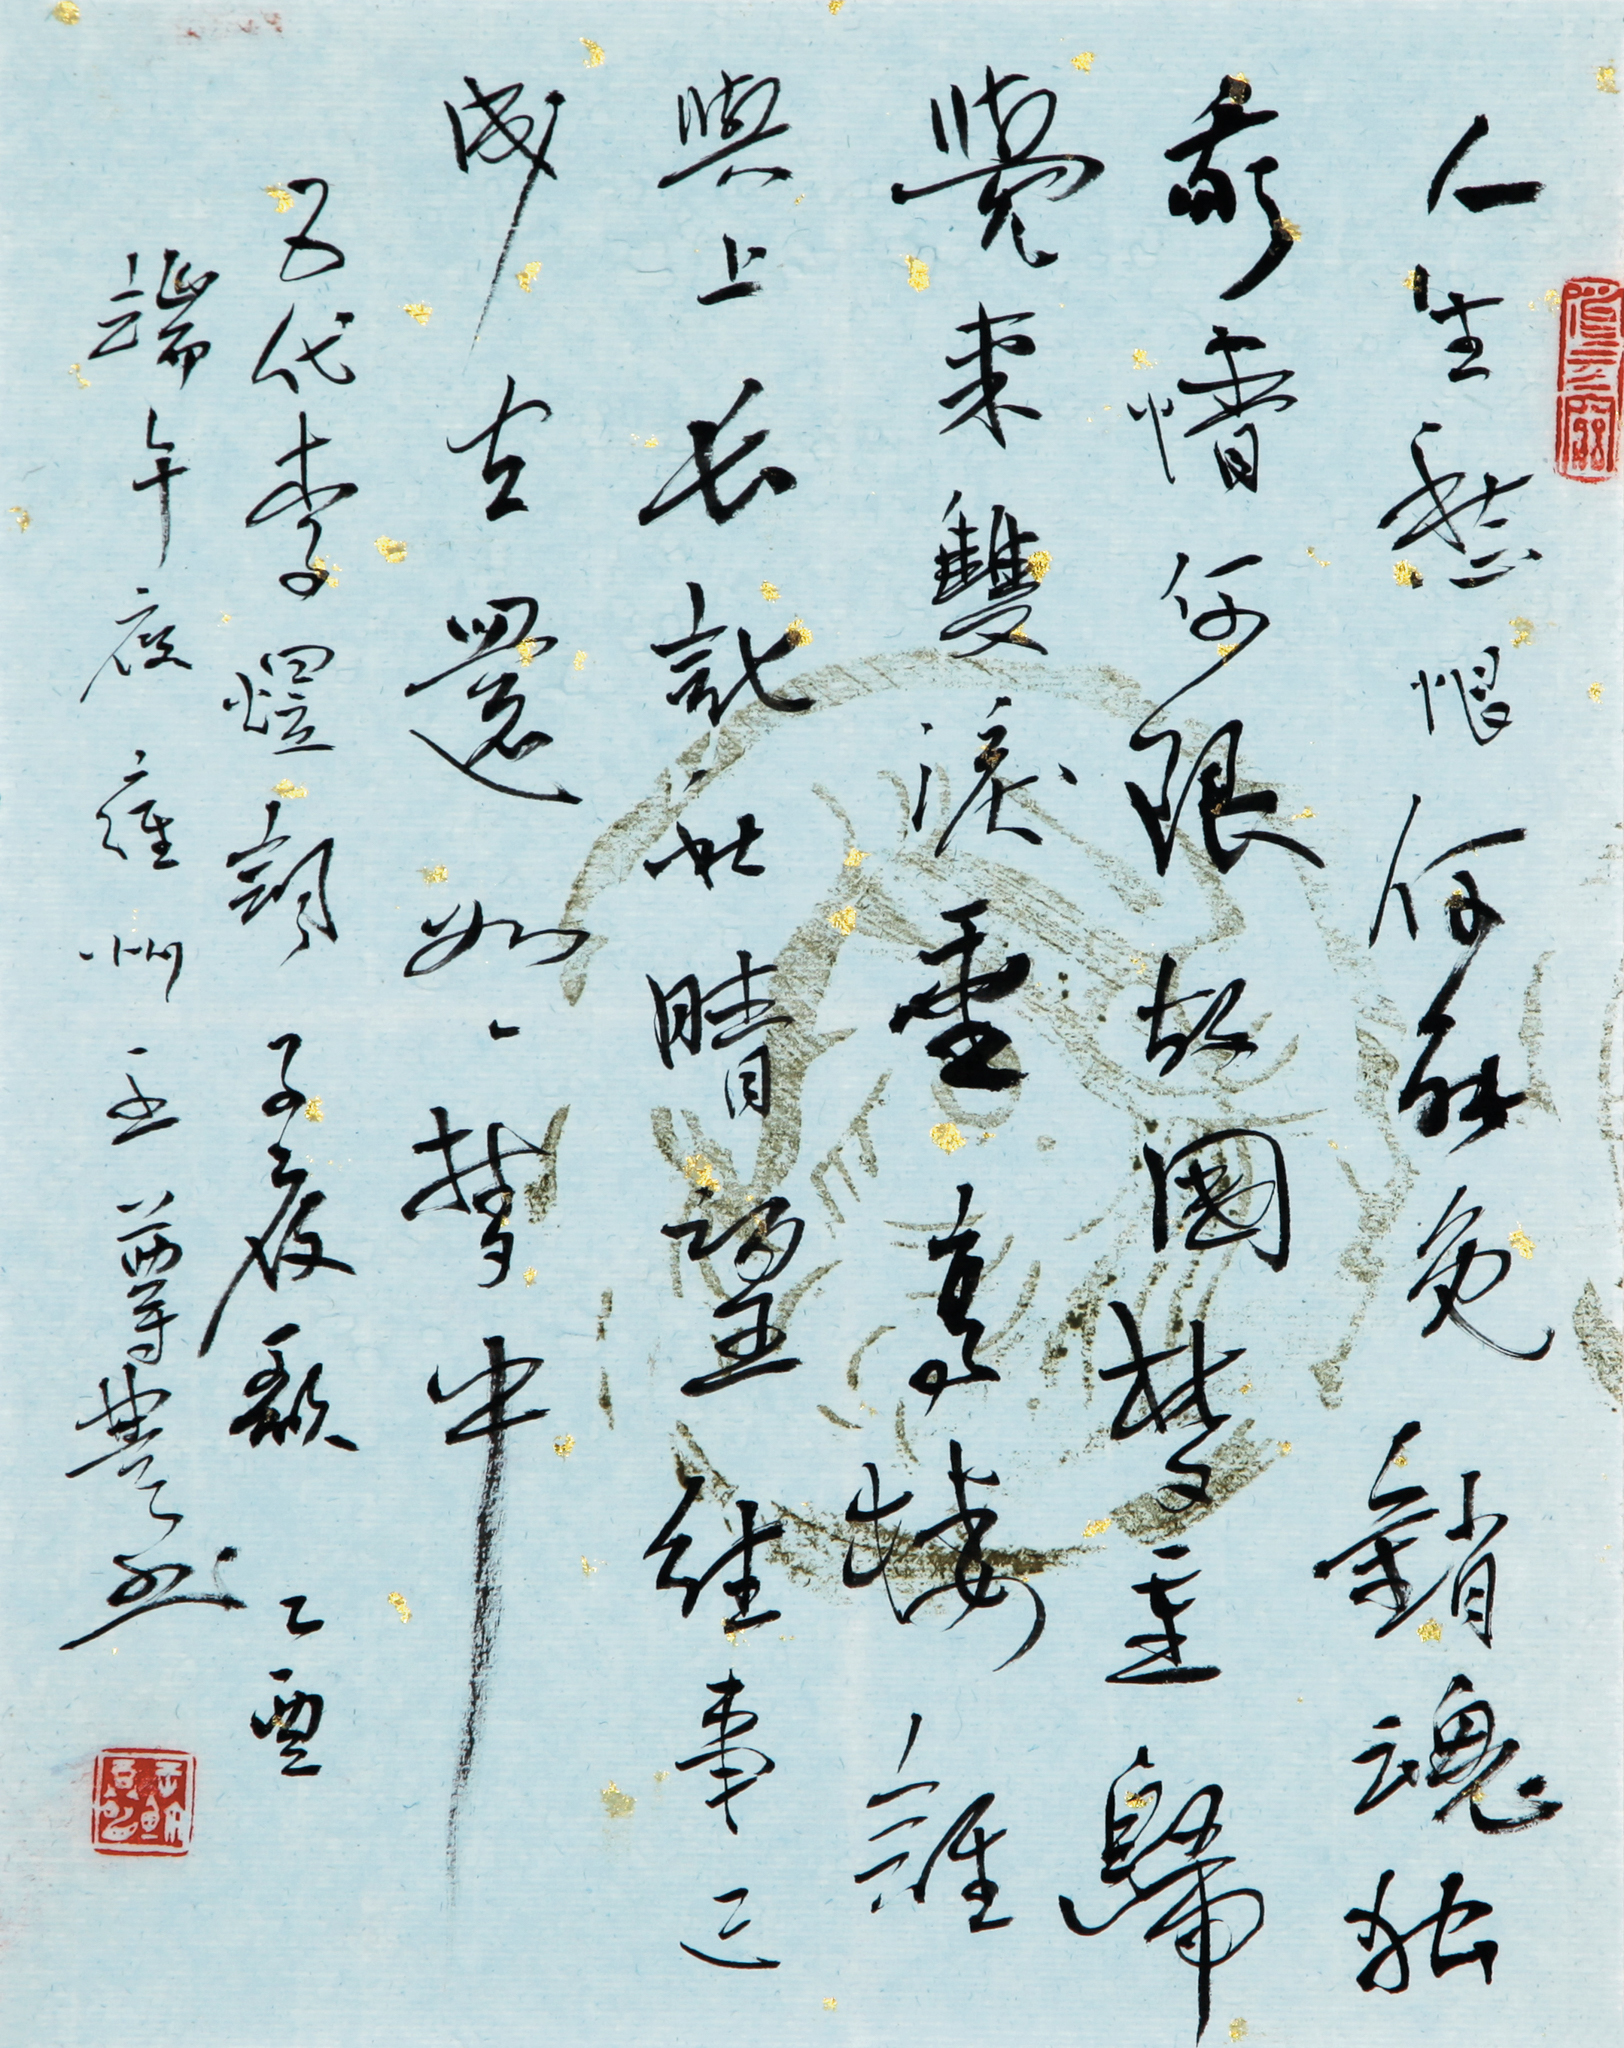 人生愁恨何能免銷魂独
我情何限故國夢重歸
覺来雙淚垂高楼誰
與上长記秋晴望往事已
成空還如一夢中
五代李煜詞子夜歌乙酉
端午夜雍州王尊